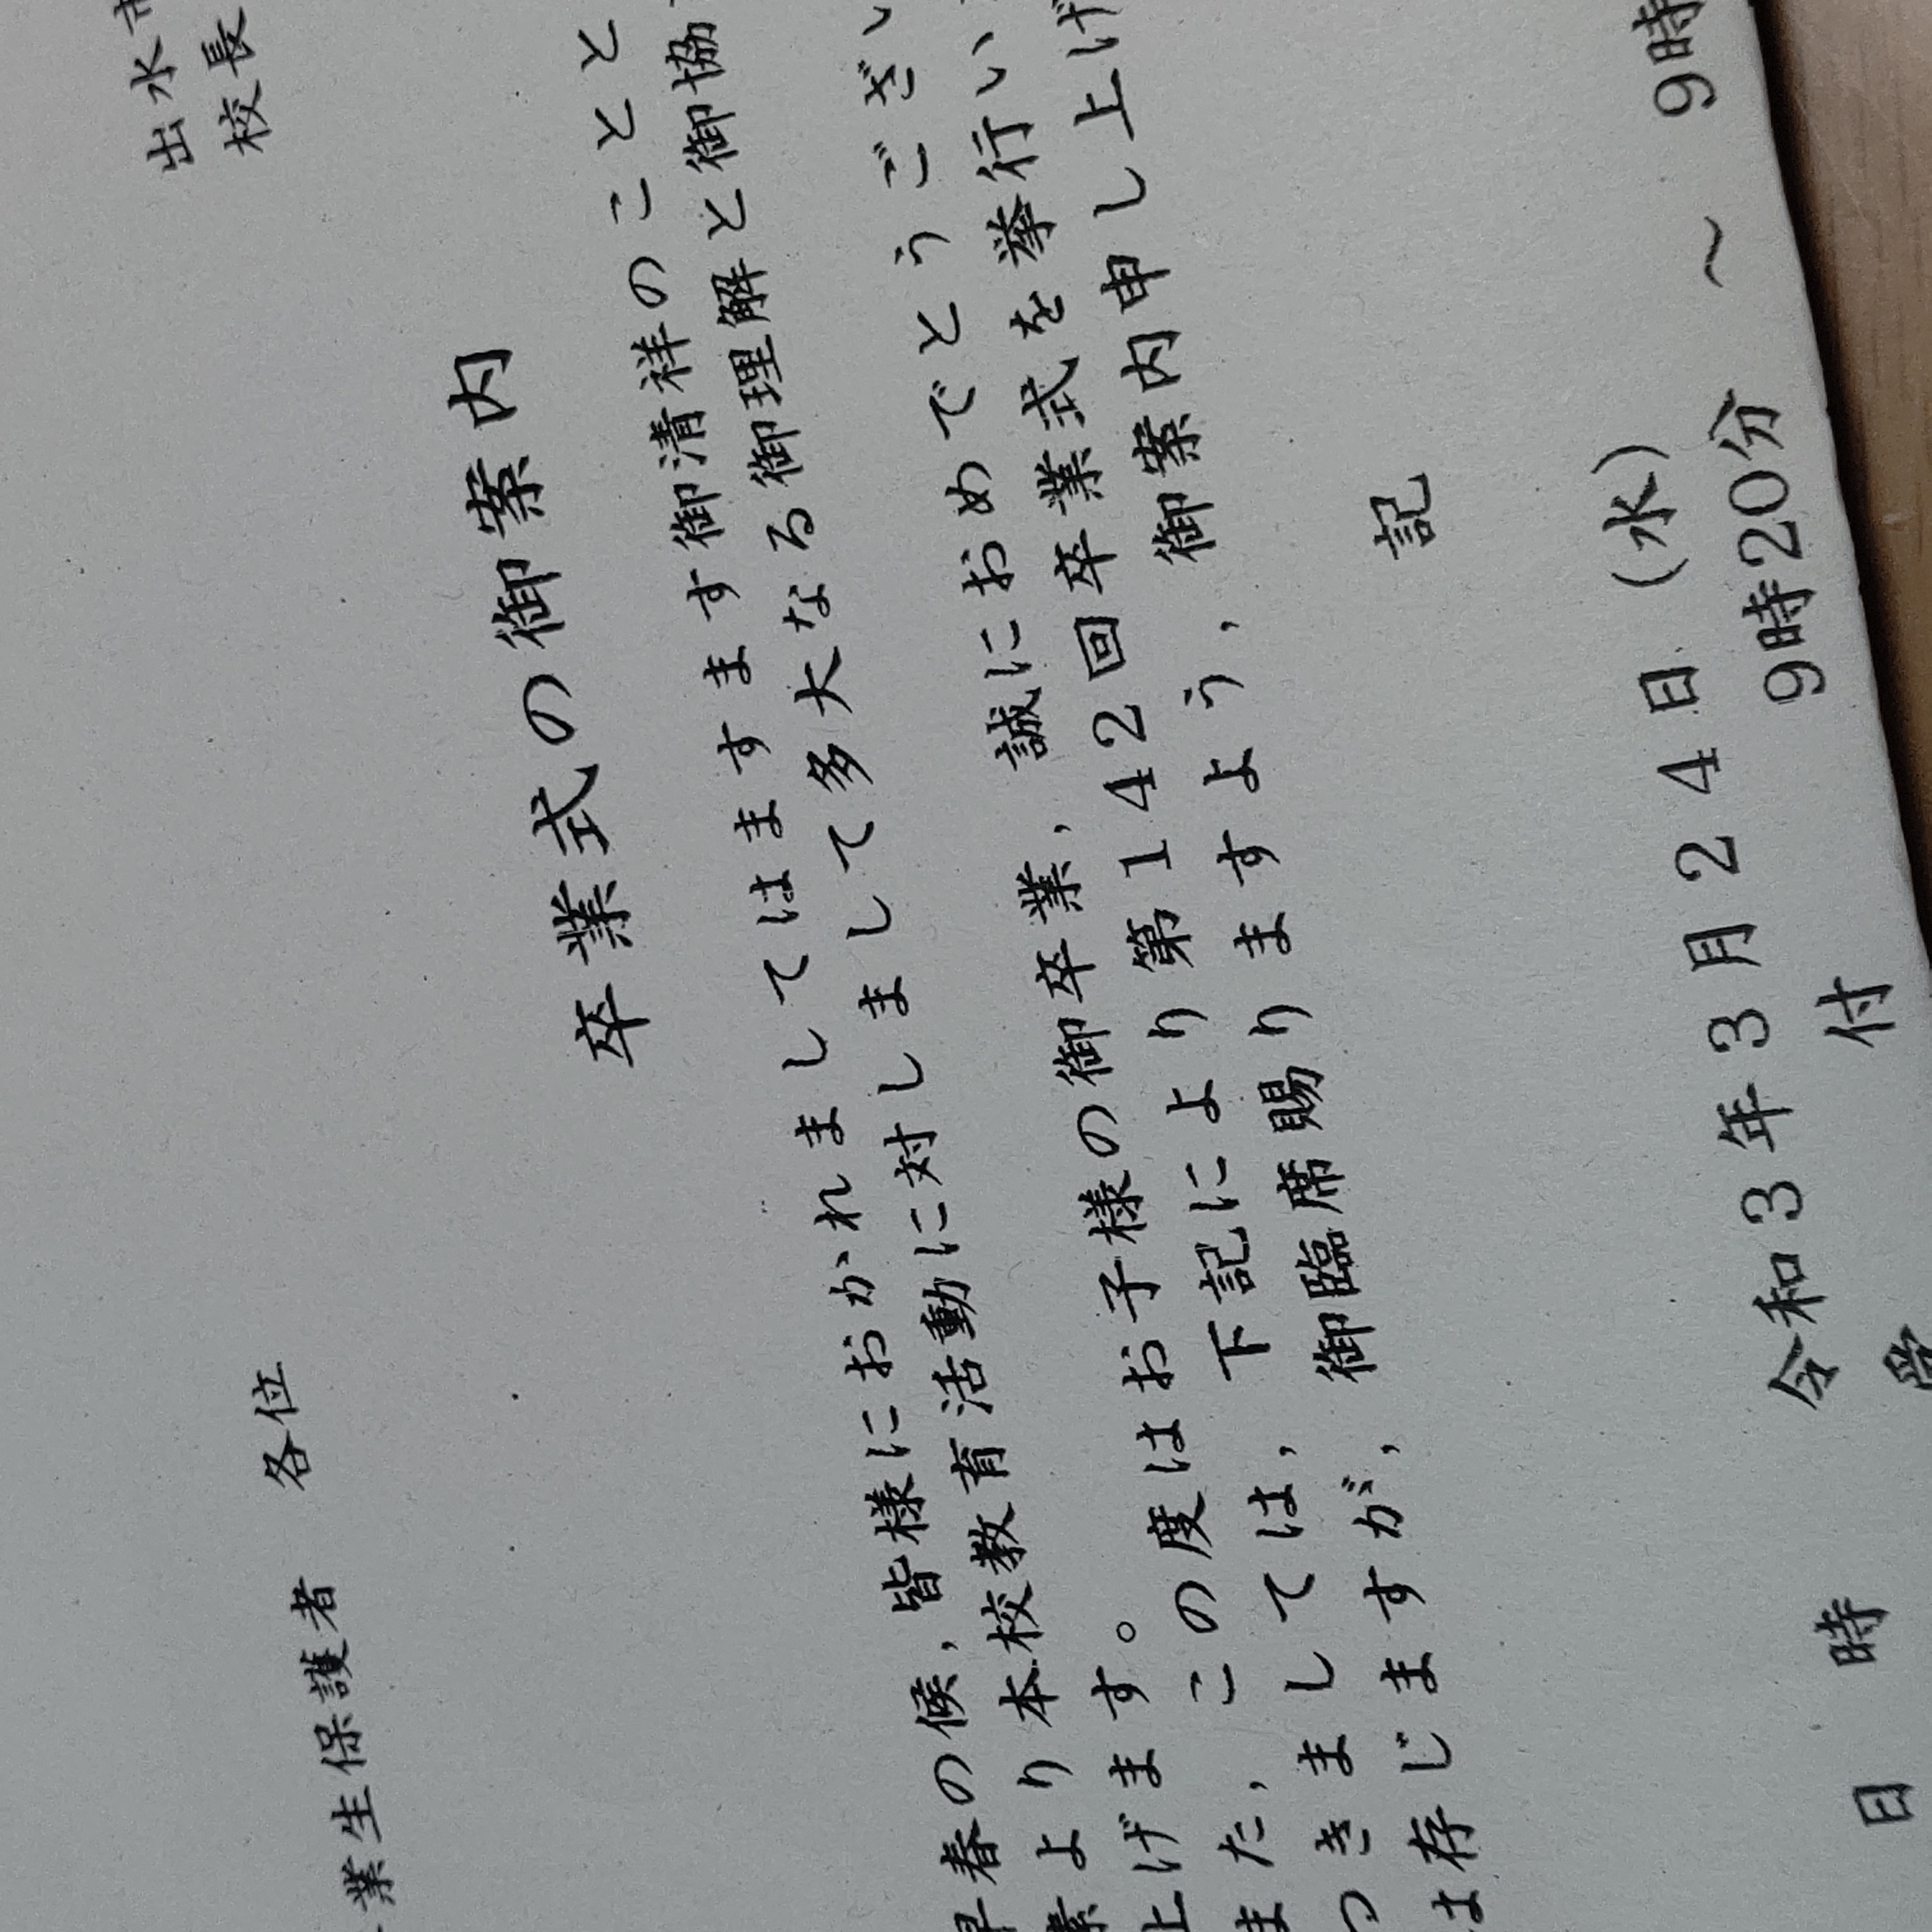 出水市
校長
業生保護者　各位
卒業式の御案内
早春の候，皆様におかれましてはますます御清祥のことと
素より本校教育活動に対しまして多大なる御理解と御協
上げます。
また，この度はお子様の御卒業，誠におめでとうござい
つきましては，下記により第142回卒業式を挙行い
は存じますが，御臨席賜りますよう，御案内申し上げ
記
日　時　令和3年3月24日（水）
受　付　9時20分　～　9時